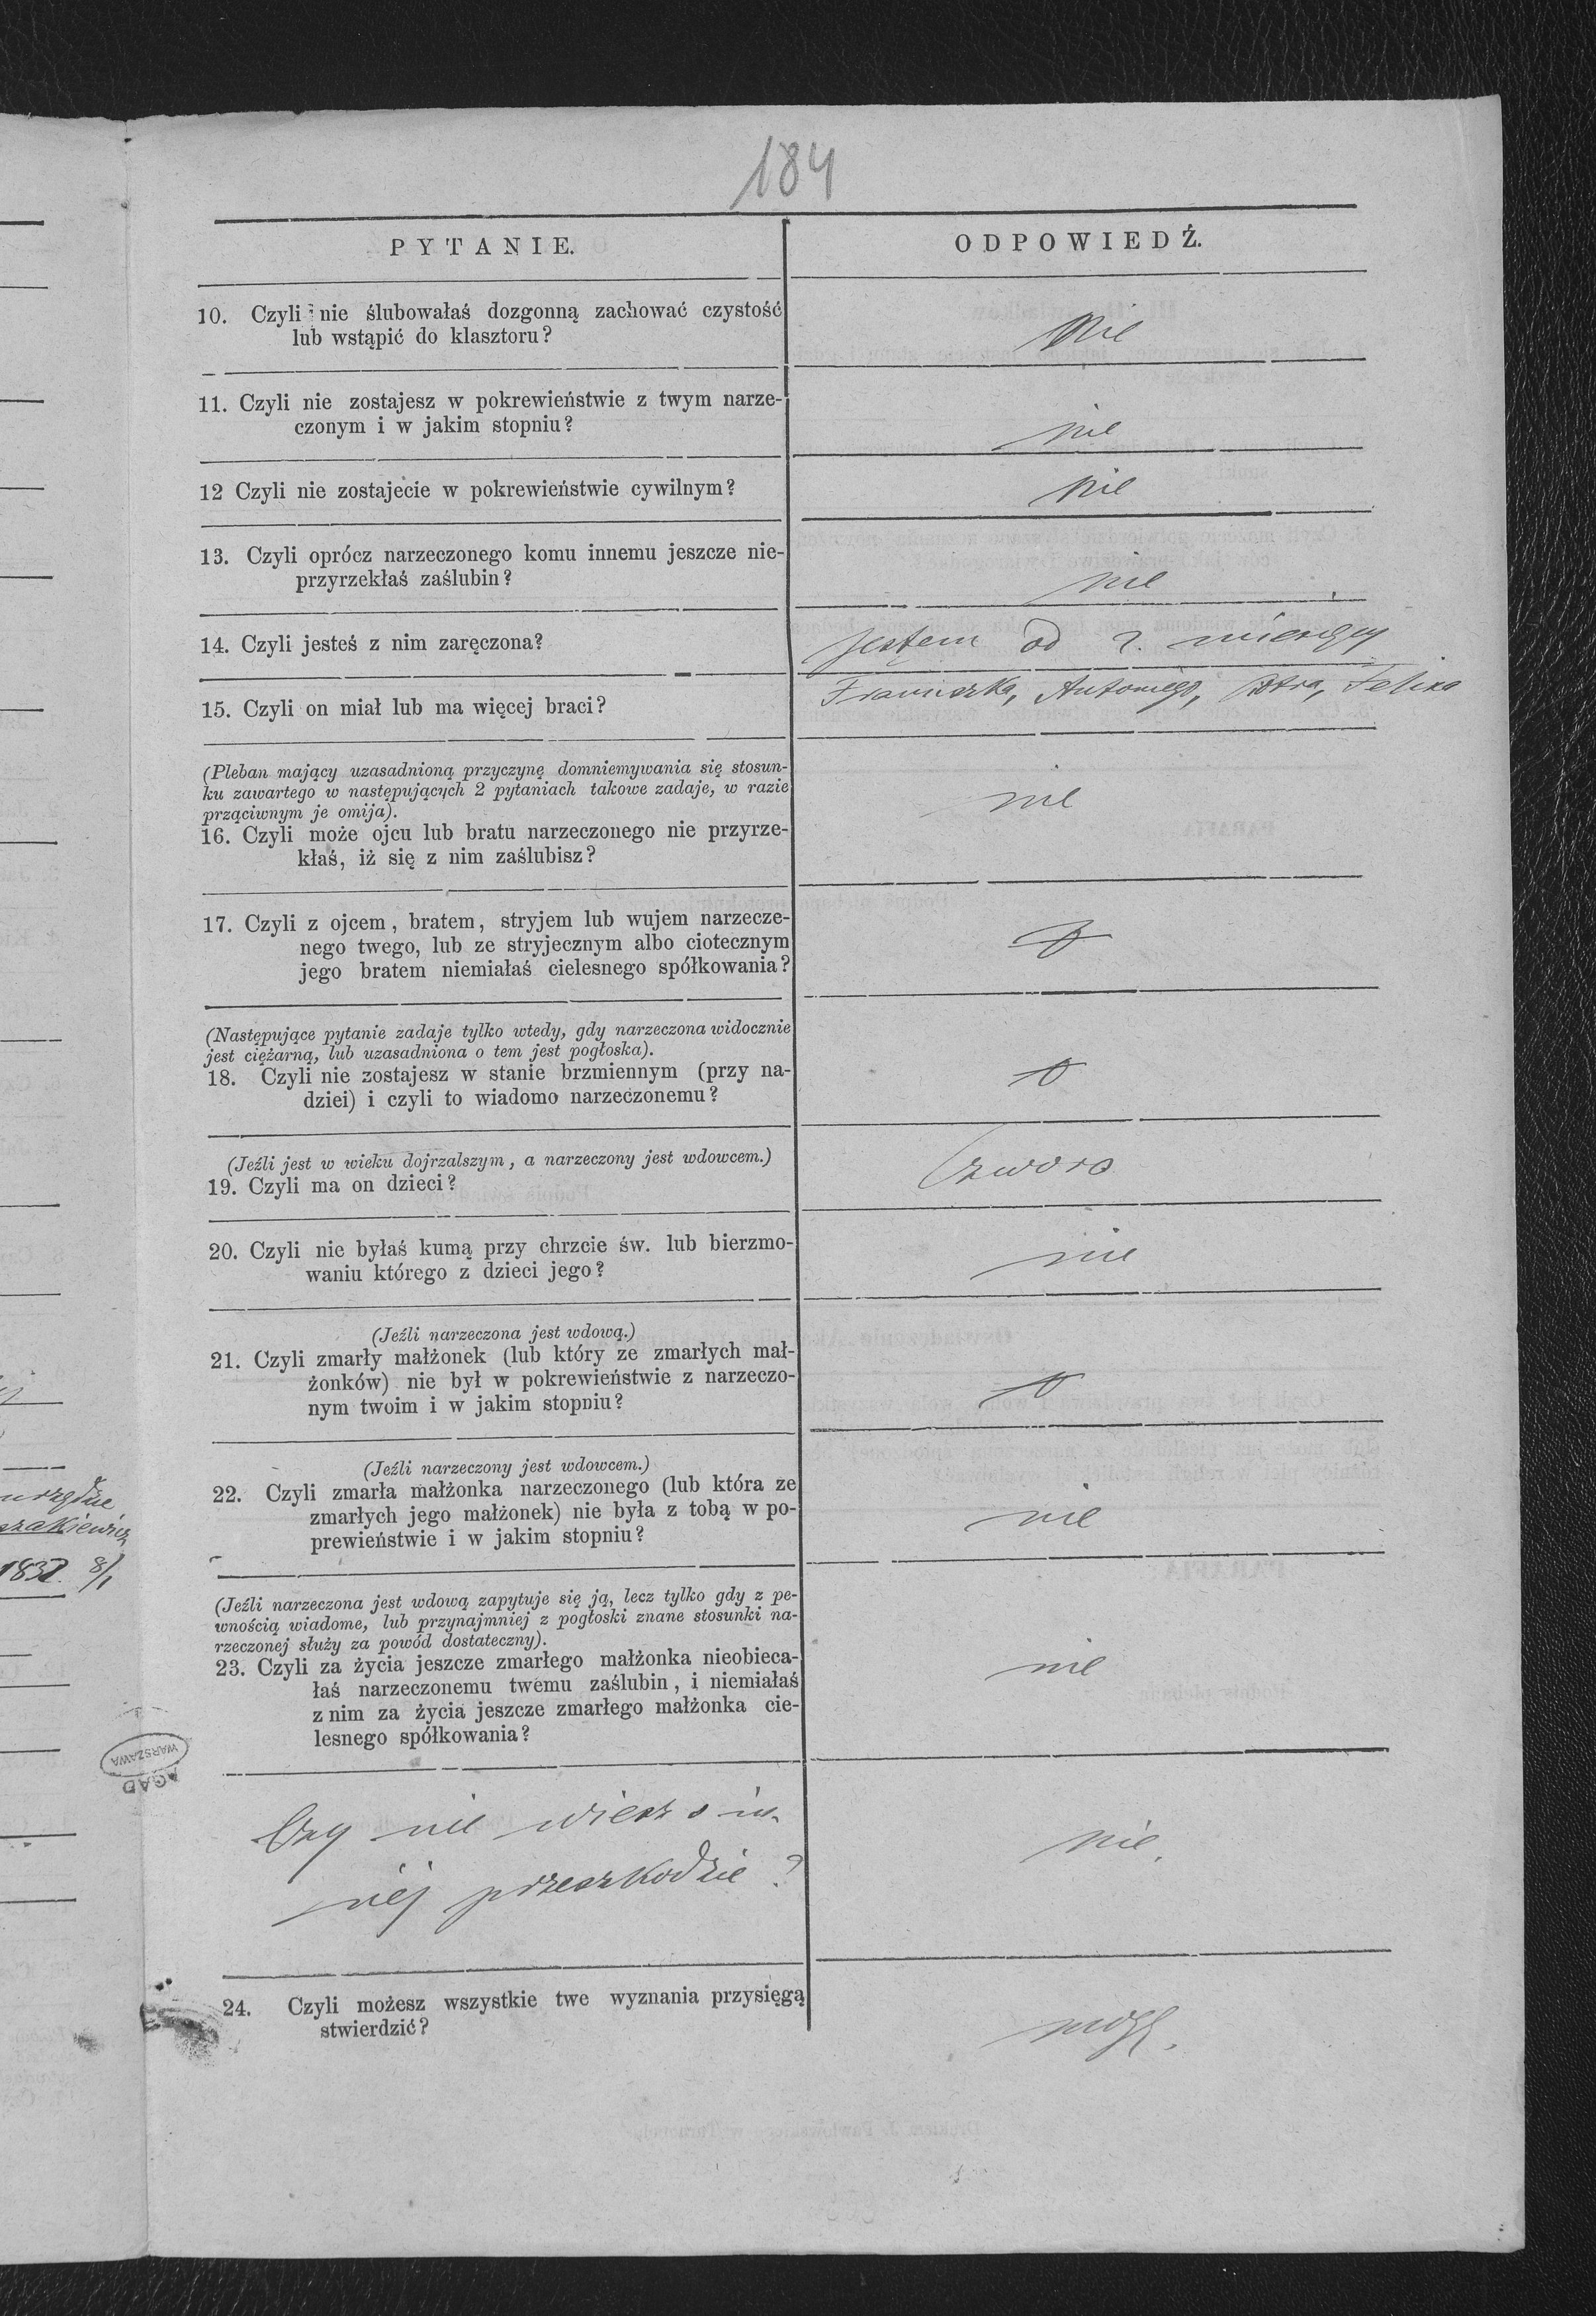 184
PYTANIE.
ODPOWIEDŹ.
10. Czyli nie ślubowałaś dozgonną zachować czystość
lub wstąpić do klasztoru?
Nie
11. Czyli nie zostajesz w pokrewieństwie z twym narze-
czonym i w jakim stopniu?
nie
12 Czyli nie zostajecie w pokrewieństwie cywilnym?
nie
13. Czyli oprócz narzeczonego komu innemu jeszcze nie-
przyrzekłaś zaślubin?
nie
14. Czyli jesteś z nim zaręczona?
jestem od 2. miesięcy
15. Czyli on miał lub ma więcej braci?
Franciszka, Antoniego, Piotra, Felixa
(Pleban mający uzasadnioną przyczynę domniemywania się stosun-
ku zawartego w następujących 2 pytaniach takowe zadaje, w razie
prząciwnym je omija).
16. Czyli może ojcu lub bratu narzeczonego nie przyrze-
kłaś, iż się z nim zaślubisz?
nie
17. Czyli z ojcem, bratem, stryjem lub wujem narzecze-
nego twego, lub ze stryjecznym albo ciotecznym
jego bratem niemiałaś cielesnego spółkowania?
(Następujące pytanie zadaje tylko wtedy, gdy narzeczona widocznie
jest ciężarną, lub uzasadniona o tem jest pogłoska).
18. Czyli nie zostajesz w stanie brzmiennym (przy na-
dziei) i czyli to wiadomo narzeczonemu?
(Jeźli jest w wieku dojrzalszym, a narzeczony jest wdowcem.)
19. Czyli ma on dzieci?
Czworo
20. Czyli nie byłaś kumą przy chrzcie św. lub bierzmo-
waniu którego z dzieci jego?
nie
(Jeźli narzeczona jest wdową.)
21. Czyli zmarły małżonek (lub który ze zmarłych mał-
żonków) nie był w pokrewieństwie z narzeczo-
nym twoim i w jakim stopniu?
(Jeźli narzeczony jest wdowcem.)
22. Czyli zmarła małżonka narzeczonego (lub która ze
zmarłych jego małżonek) nie była z tobą w po-
prewieństwie i w jakim stopniu?
nie
(Jeźli narzeczona jest wdową zapytuje się ją, lecz tylko gdy z pe-
wnością wiadome, lub przynajmniej z pogłoski znane stosunki na-
rzeczonej służy za powód dostateczny).
23. Czyli za życia jeszcze zmarłego małżonka nieobieca-
łaś narzeczonemu twemu zaślubin, i niemiałaś
z nim za życia jeszcze zmarłego małżonka cie-
lesnego spółkowania?
nie
Czy nie wiesz o in-
nej przeszkodzie?
nie.
24. Czyli możesz wszystkie twe wyznania przysięgą
stwierdzić?
mogę.
AGAD
WARSZAWA